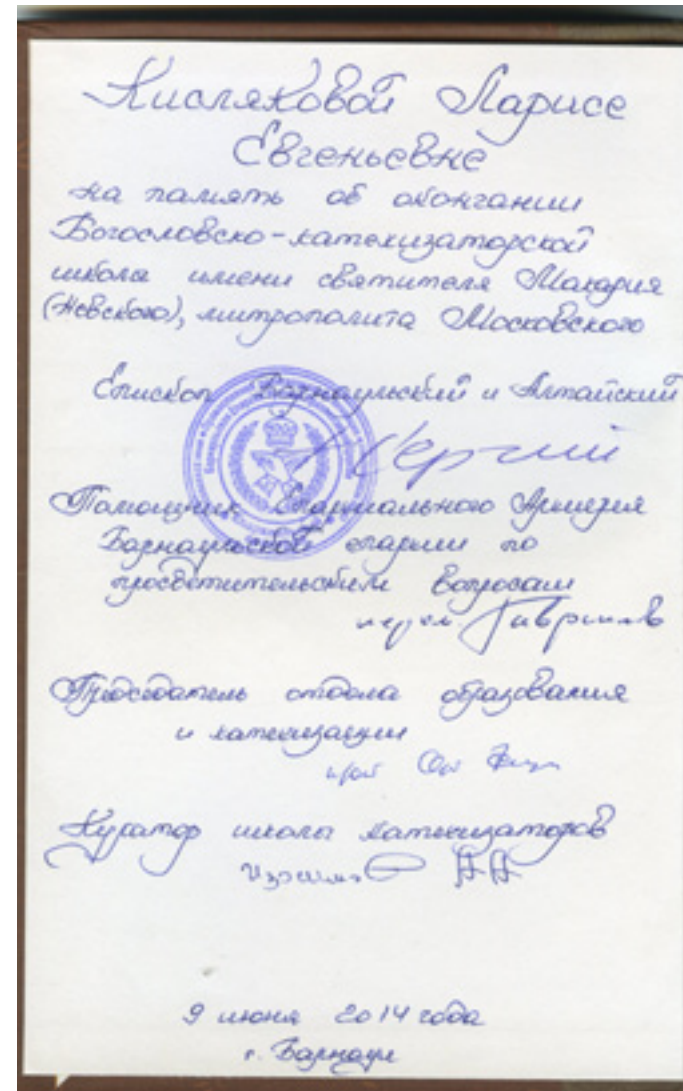 Кисляковой Ларисе
Евгеньевне
на память об окончании
Богословско-катехизаторской
школы имени святителя Макария
(Невского), митрополита Московского
Епископ Барнаульский и Алтайский
Сергий
Помощник Епархиального Архиерея
Барнаульской епархии по
просветительским вопросам
Председатель отдела образования
и катехизации
Куратор школы катехизаторов
9 июня 2014 года
г. Барнаул